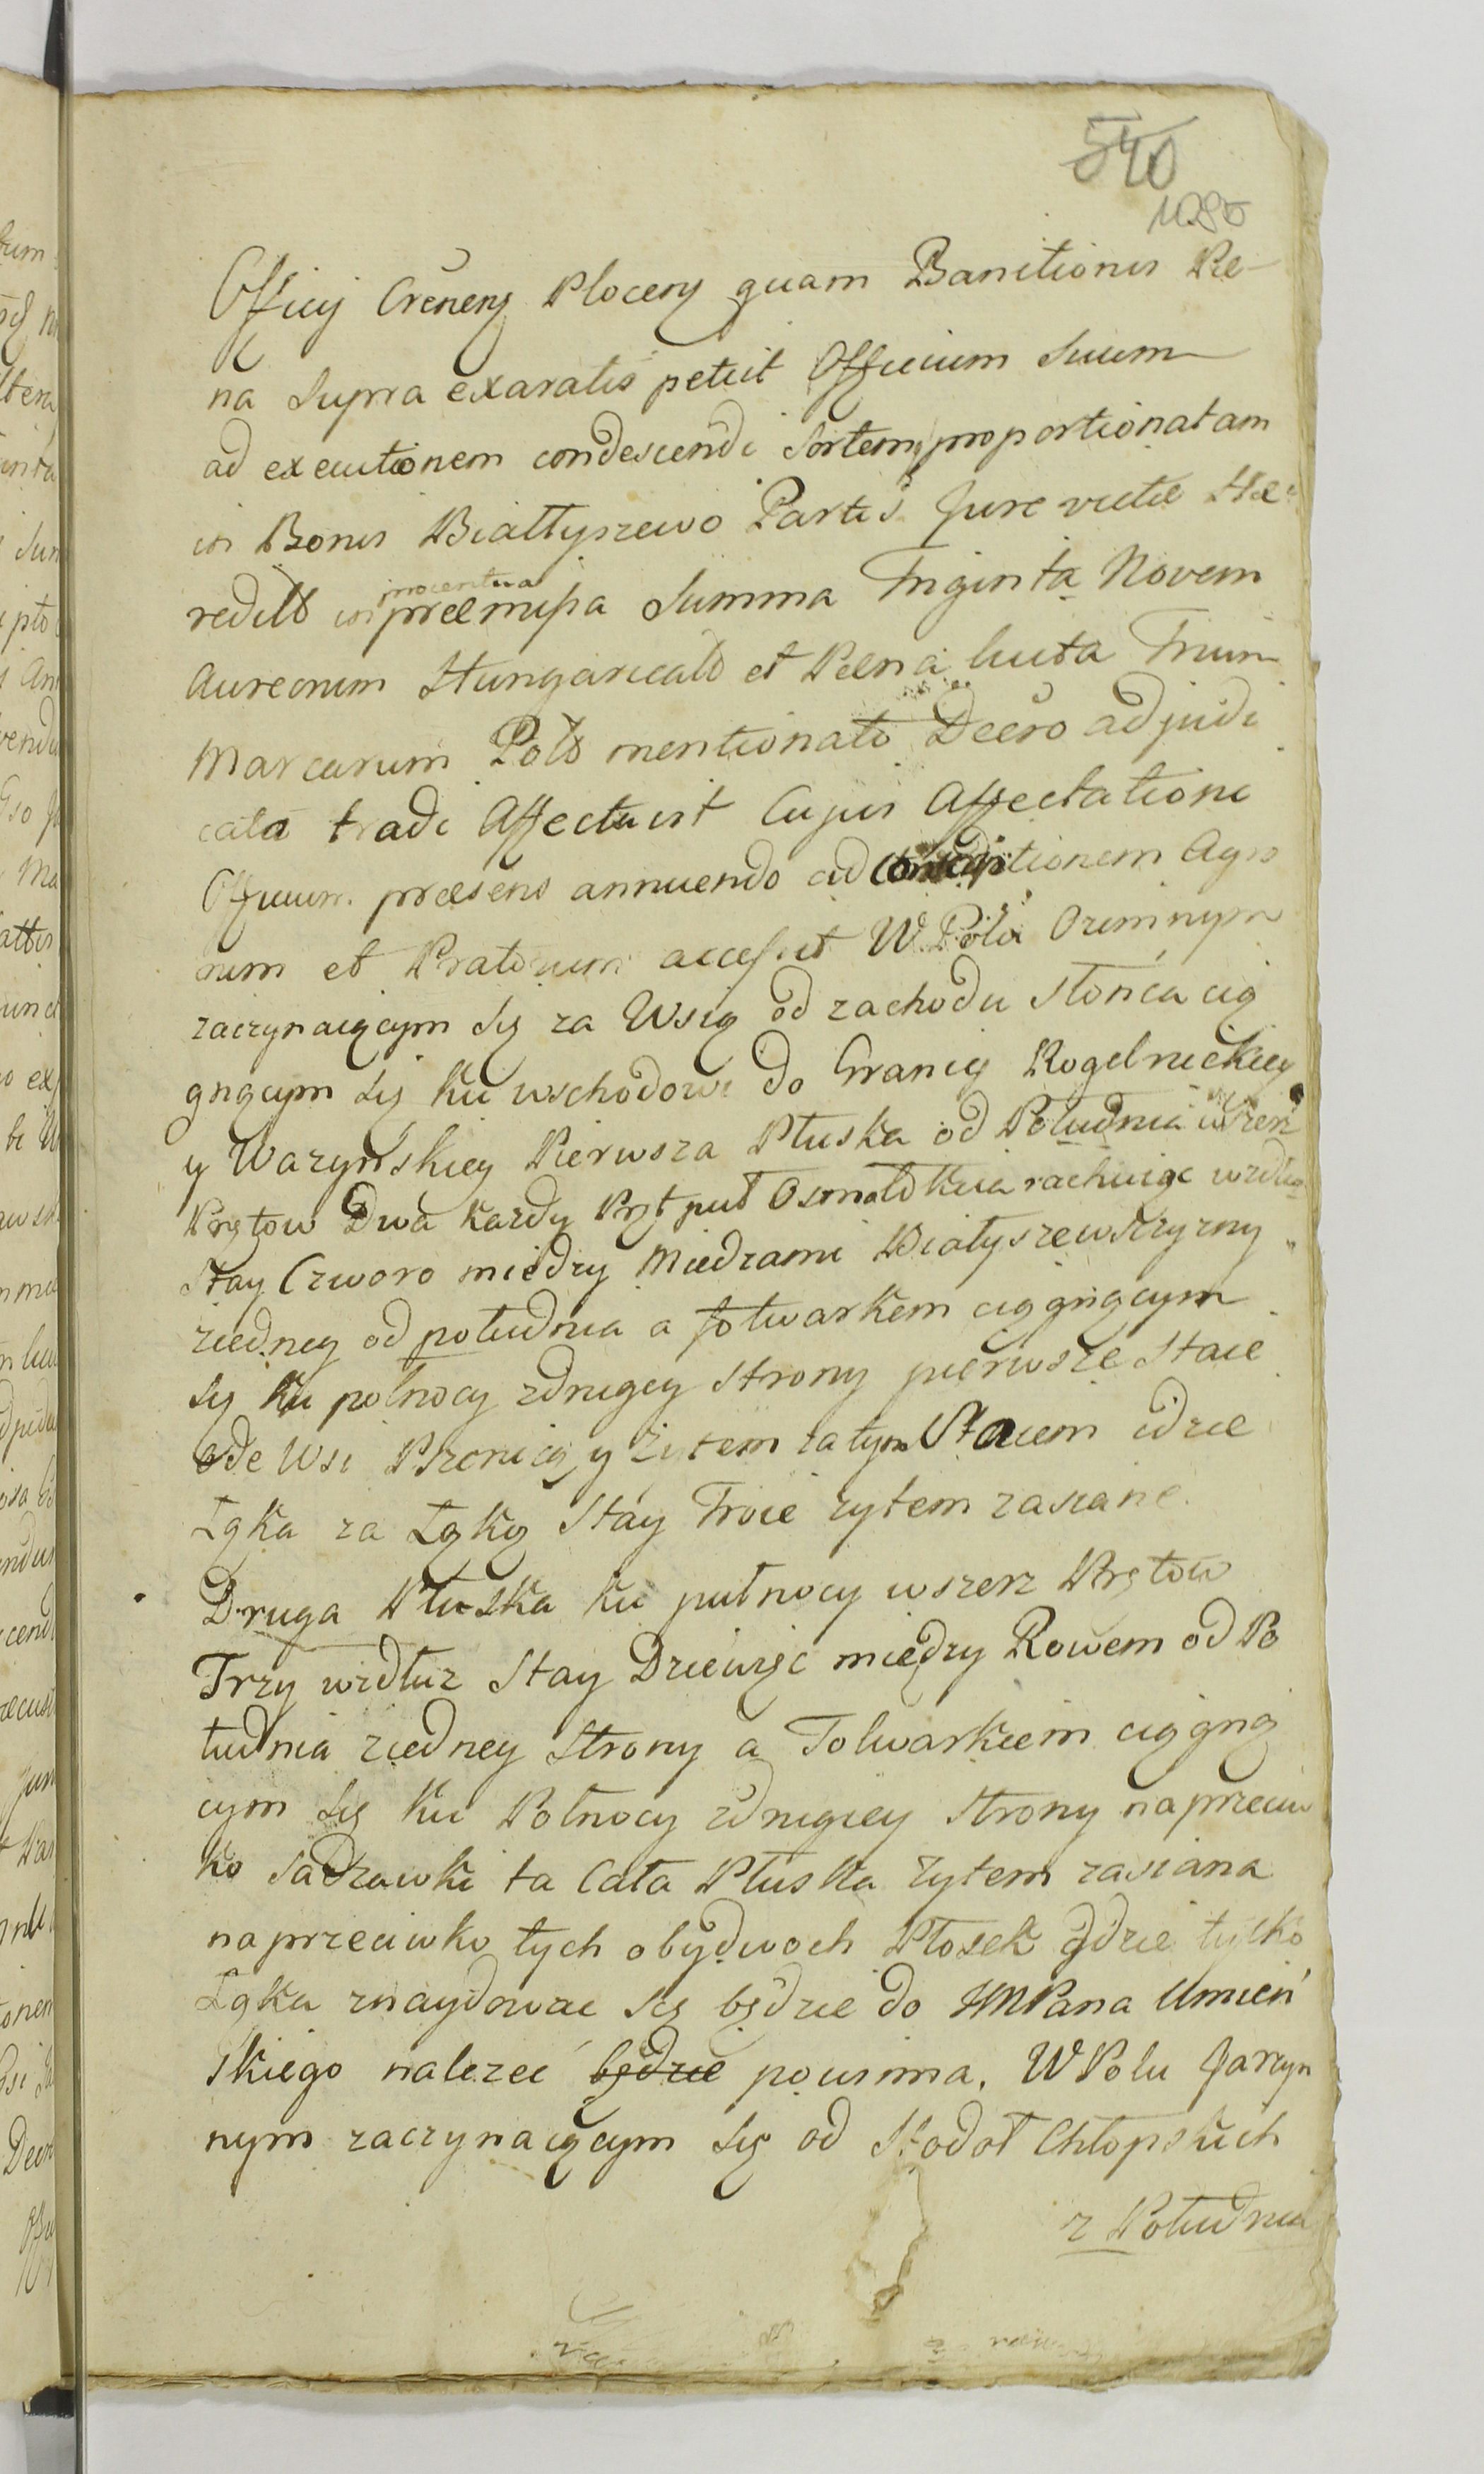 540
1080
Officij Crenens Plocens quam Banitionis Pœ-
na Supra exaratis petiit Officium Suum
ad executionem condescendi Sortem proportionatam
in Bonis Białtyszewo Partis Jure victæ Hæ-
procentua
redilb in præmissa Summa Triginta Novem
Aureorum Hungaricalb et Pœna luita Trium
Marcarum Polb mentionato Decro adjudi
cata tradi Affectavit Cujus Affectationi
Officium præsens annuendo ad tionem Agro
rum et Pratorum accessit W Polu Ozimnym
zaczynaiącym się za Wsią od zachodu słońca cią
gnącym się ku wschodowi do Granicy Rogelnickiey
y Wazyńskiey Pierwsza Płuska od Południa wszerz
Prętow Dwa każdy Pręt puł Osma łokcia rachuiąc wzdłuż
Stay Czworo miedzy Miedzami Białyszewszczyzny
ziedney od południa a folwarkem ciągnącym
się ku północy zdrugey Strony pierwsze Staie
ode Wsi Pszenicą y Żytem za tym Staiem idzie
Łąka za Łąką Stay Troie żytem zasiane.
Druga Płuska ku pułnocy wszerz Prętow
Trzy wzdłuż Stay Dziewięć między Rowem od Po
łudnia ziedney Strony a Folwarkiem ciągną
cym się ku Połnocy zdrugiey Strony naprzeciw
ko Sadzawki ta Cała Płuska Żytem zasiana
naprzeciwko tych obydwoch Płosek gdzie tylko
Łąka znaydować się będzie do JMPana Umień
skiego należeć będzie powinna. W Polu Jarzyn
nym zaczynaiącym się od Stodoł Chłopskich
z Południa